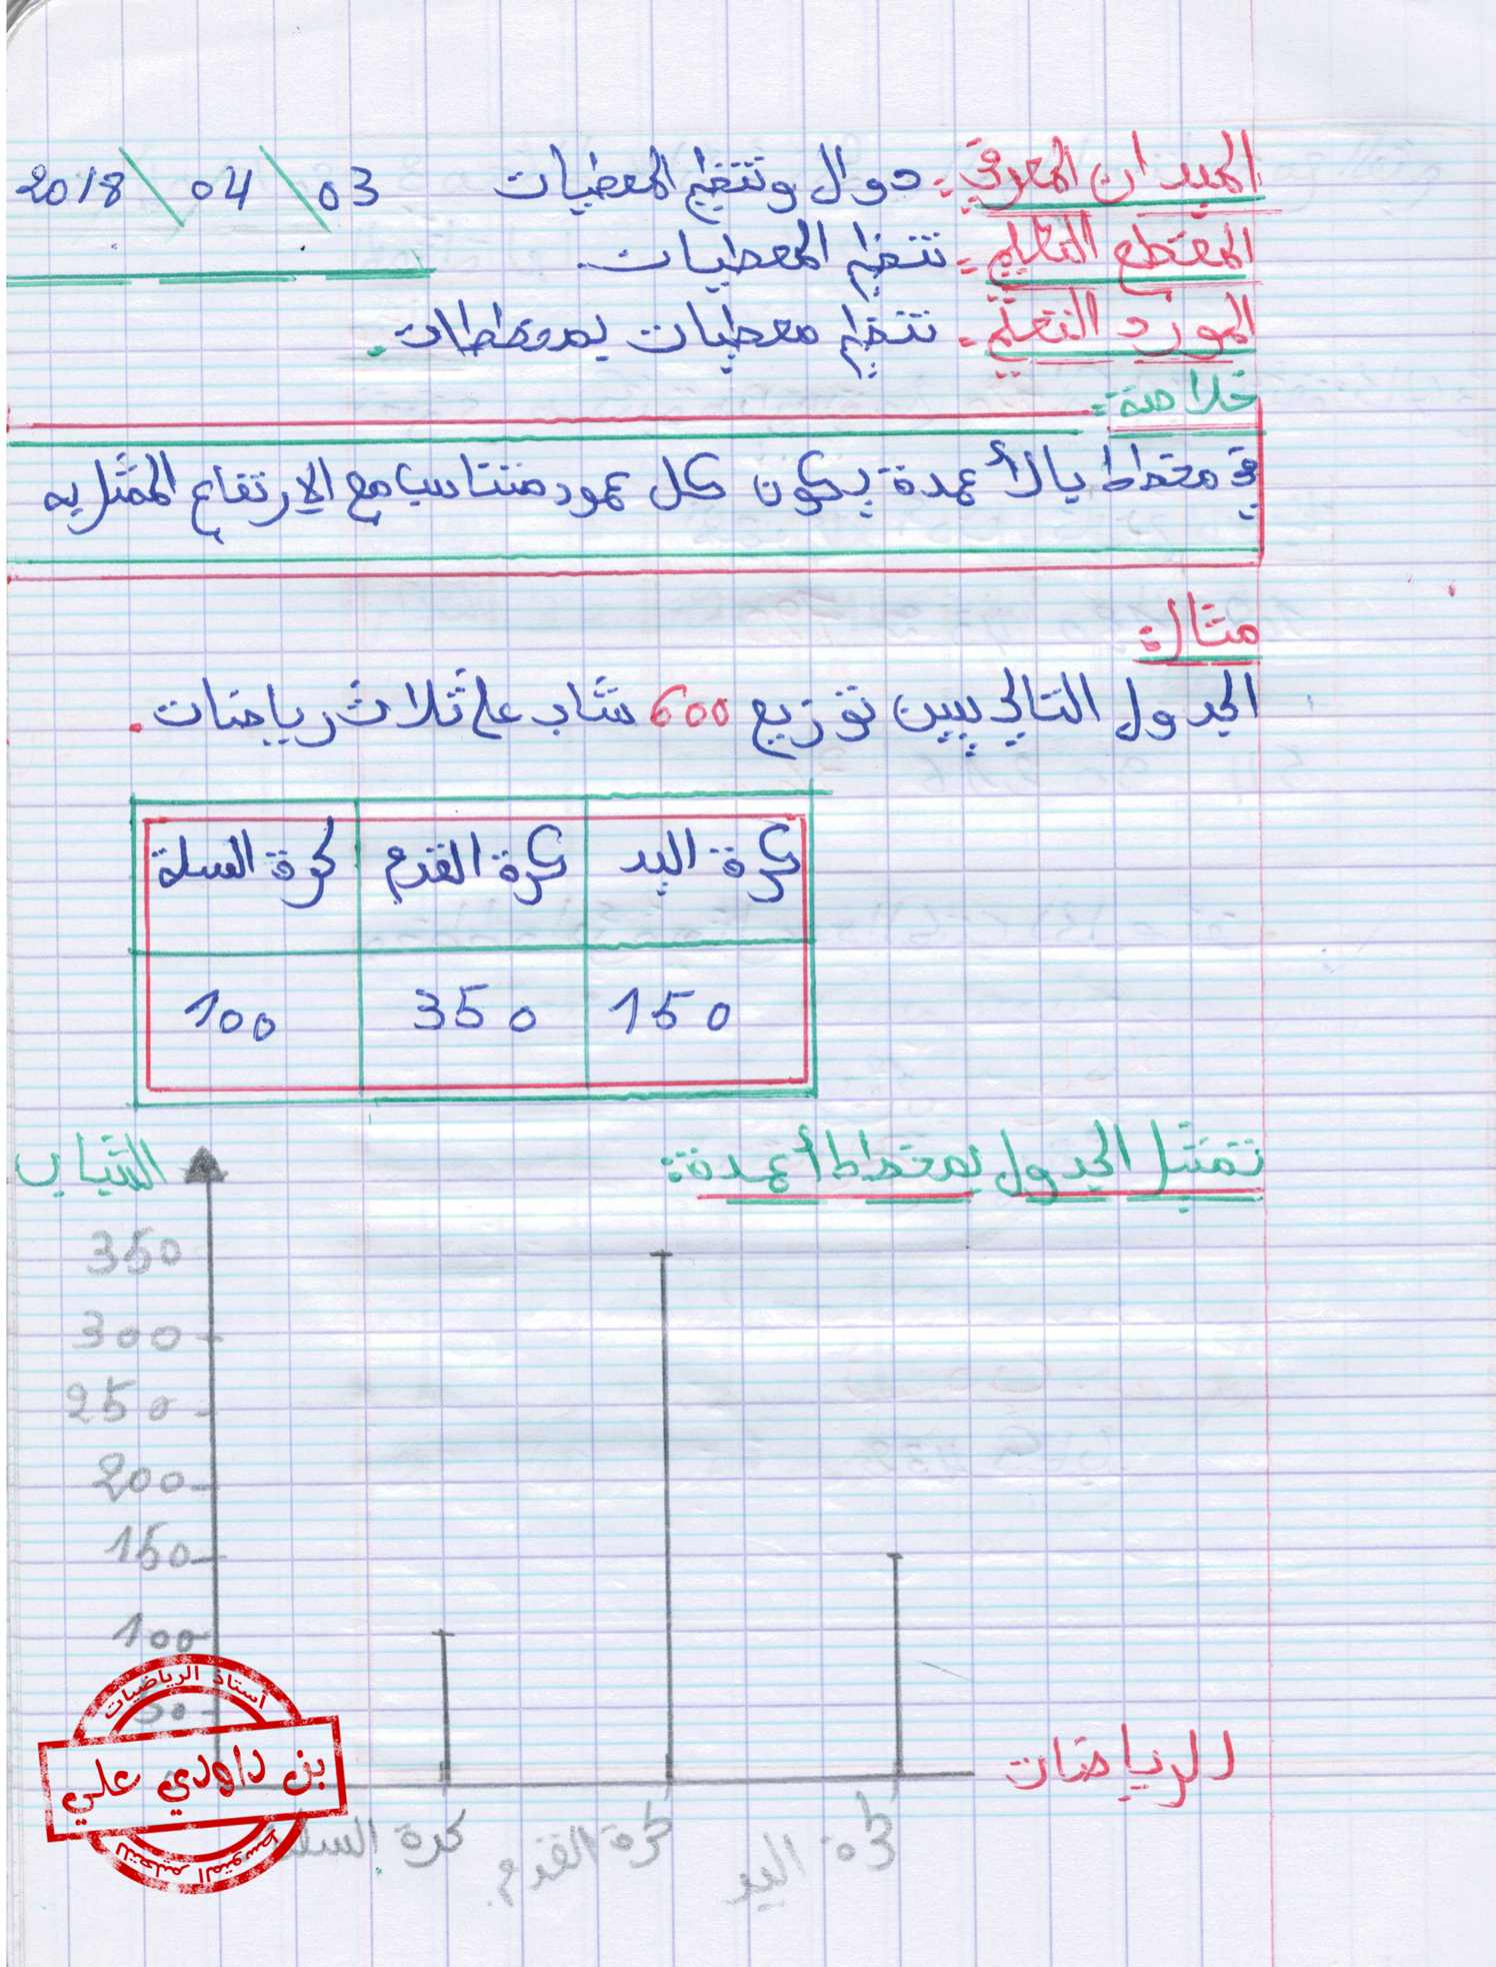 الميدان المعرفي: دوال وتنظيم المعطيات 03 \ 04 \ 2018
المقطع التعليمي: تنظيم المعطيات.
المورد التعلمي: تنظيم معطيات بمخططات.
خلاصة:
في مخطط بالأعمدة يكون كل عمود متناسب مع الارتفاع الممثل به
مثال:
الجدول التالي يبين توزيع 600 شاب على ثلاث رياضات.
كرة اليد كرة القدم كرة السلة
150 350 100
تمثيل الجدول بمخطط أعمدة:
الشباب
350
300
250
200
150
100
50
الرياضات
كرة السلة كرة القدم كرة اليد
أستاذ الرياضيات
بن داودي علي
للتعليم المتوسط